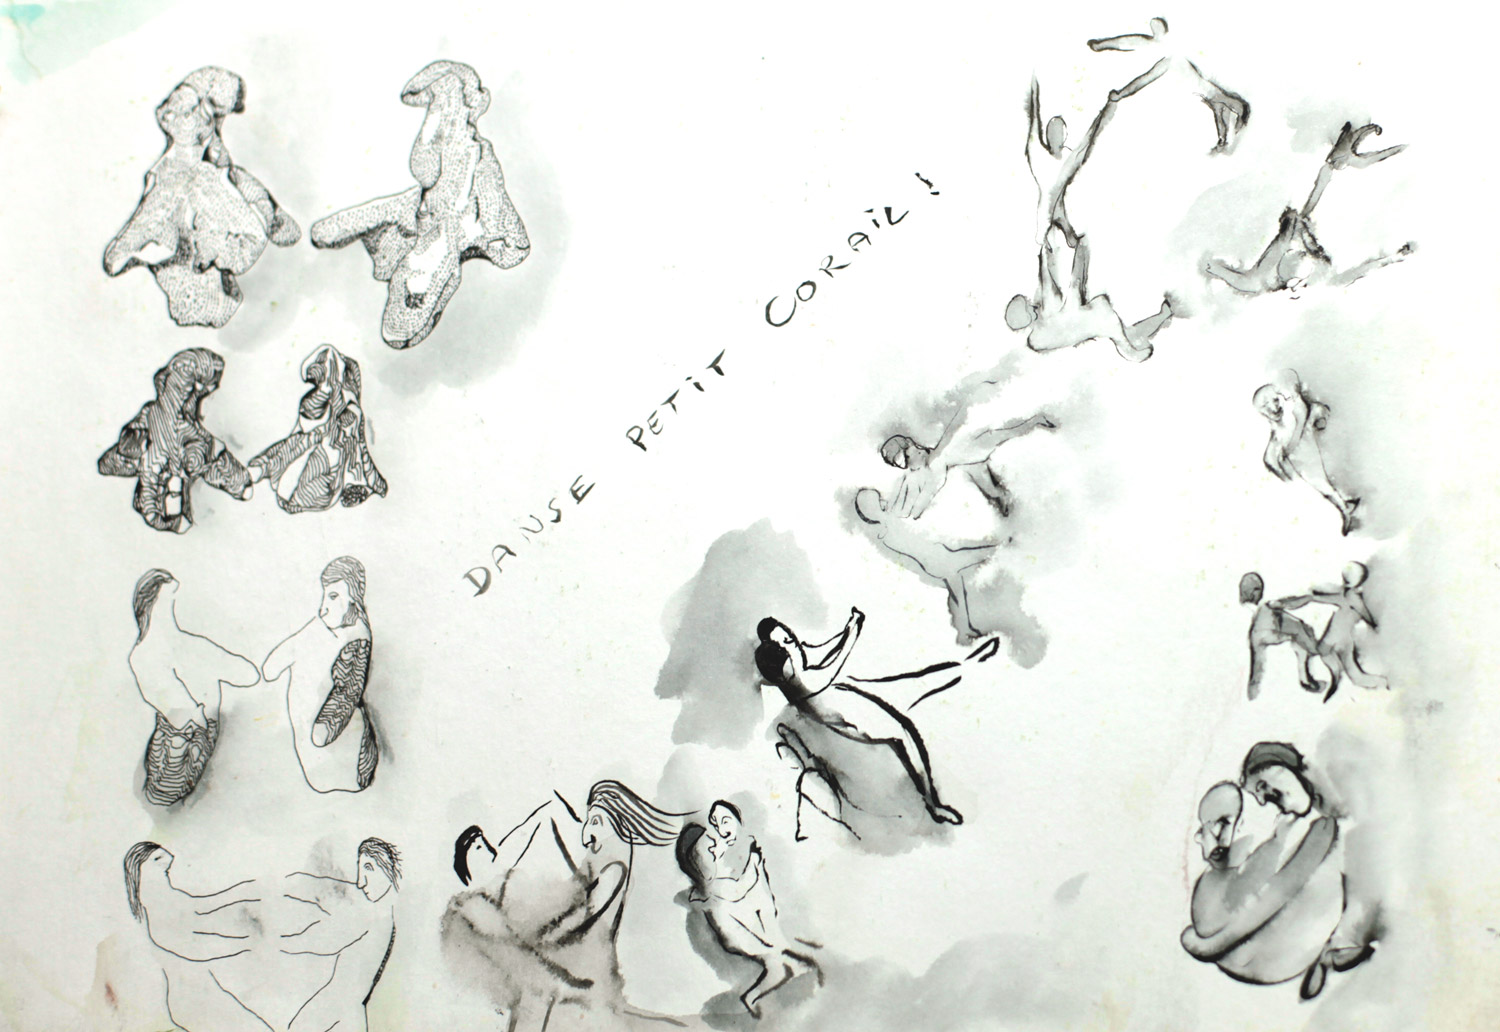 DANSE PETIT CORAIL !